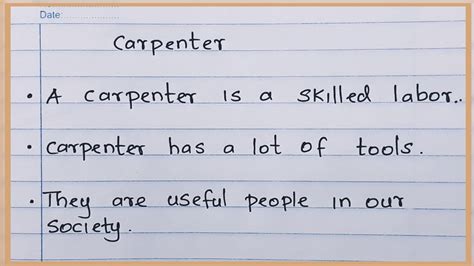 Date:
Carpenter
• A carpenter is a skilled labor..
• Carpenter has a lot of tools.
• They are useful people in our
society.